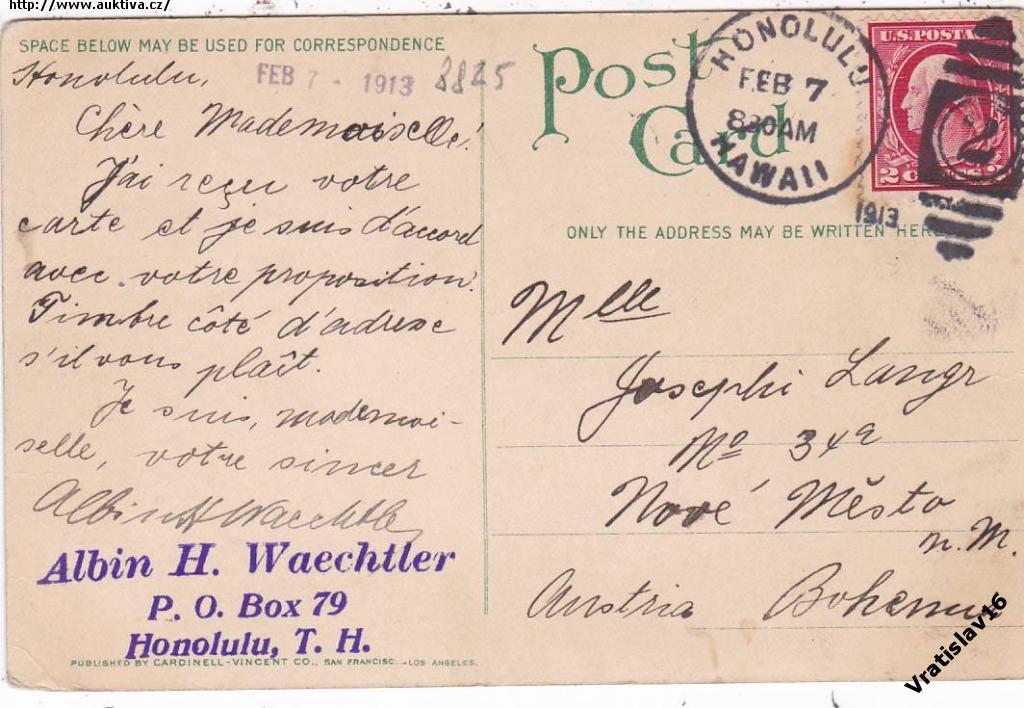 http://www.auktiva.cz/
SPACE BELOW MAY BE USED FOR CORRESPONDENCE
Honolulu,
FEB 7 - 1913
8825
Chère Mademoiselle!
J'ai reçu votre
carte et je suis d'accord
avec votre proposition.
Timbre côté d'adresse
s'il vous plaît.
Je suis, mademoi-
selle, votre sincer
Albin H Waechtler
Albin H. Waechtler
P. O. Box 79
Honolulu, T. H.
PUBLISHED BY CARDINELL-VINCENT CO., SAN FRANCISC -LOS ANGELES.
Post
Card
HONOLULU
FEB 7
830AM
HAWAII
1913
U.S. POSTA
2 C
2
ONLY THE ADDRESS MAY BE WRITTEN HERE
Mlle
Josephi Langr
No 34a
Nové Město
n. M.
Austria Bohemia
Vratislav16